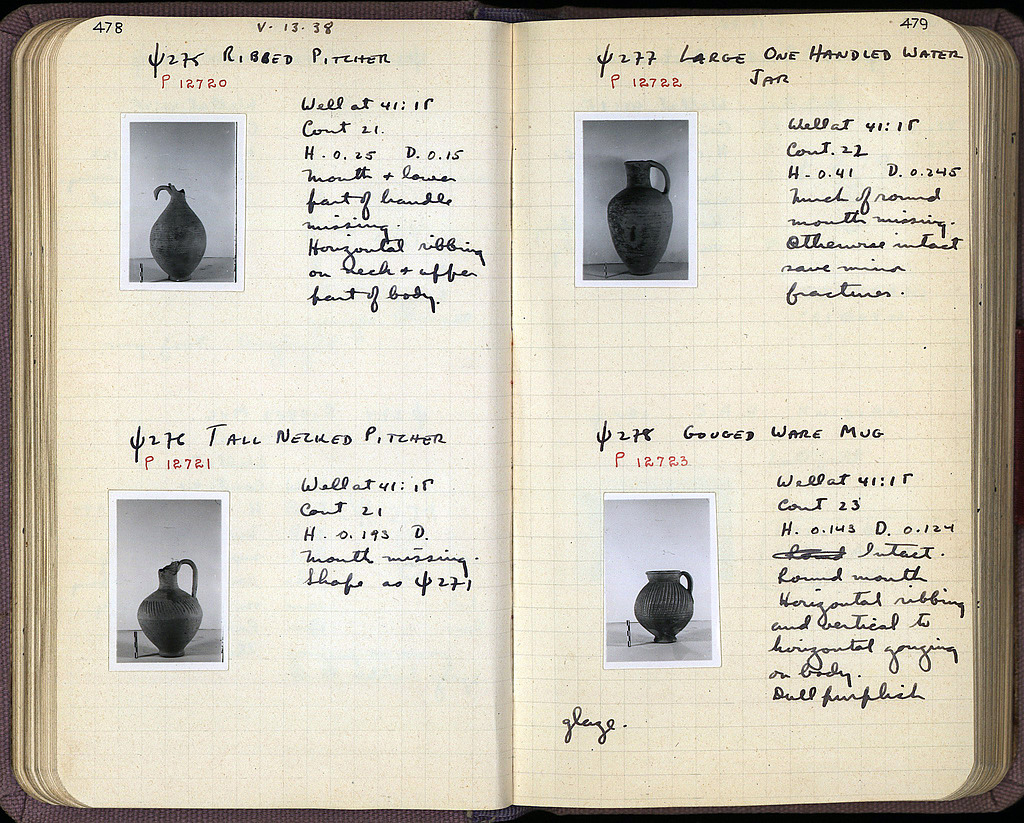 478
V. 13. 38
ψ275 RIBBED PITCHER
P 12720
Well at 41:15
Cont 21.
H. 0.25 D. 0.15
Mouth + lower
part of handle
missing.
Horizontal ribbing
on neck + upper
part of body.
ψ276 TALL NECKED PITCHER
P 12721
Well at 41:15
Cont 21
H. 0.193 D.
Mouth missing.
Shape as ψ271
479
ψ277 LARGE ONE HANDLED WATER
JAR
P 12722
Well at 41:15
Cont. 22
H. 0.41 D. 0.245
Much of round
mouth missing.
Otherwise intact
save minor
fractures.
ψ278 GOUGED WARE MUG
P 12723
Well at 41:15
Cont 23
H. 0.143 D. 0.124
Intact.
Round mouth
Horizontal ribbing
and vertical to
horizontal gouging
on body.
Dull purplish
glaze.